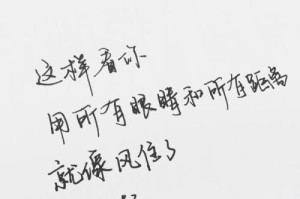 这样看你
用所有眼睛和所有距离
就像风住了